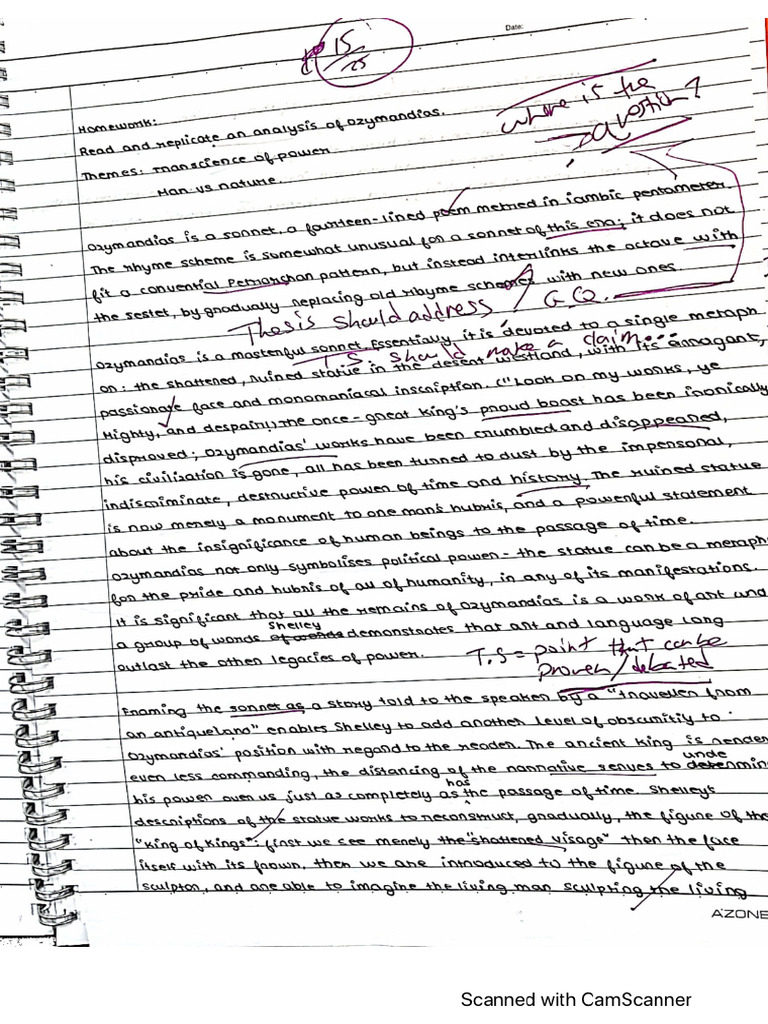 Date:
15
25
Homework:
Read and replicate an analysis of Ozymandias.
where is the
question?
Themes: Transcience of power
Man vs nature.
Ozymandias is a sonnet, a fourteen-lined poem metred in iambic pentameter.
The rhyme scheme is somewhat unusual for a sonnet of this era; it does not
fit a convential Petrarchan pattern, but instead interlinks the octave with
the sestet, by gradually replacing old rhyme schemes with new ones.
Thesis should address G.Q.
Ozymandias is a masterful sonnet. Essentially, it is devoted to a single metaph
T.S. should make a claim...
or: the shattered, ruined statue in the desert wastland, with its arragant,
passionate face and monomaniacal inscription. ("Look on my works, ye
Mighty, and despair!) The once-great king's proud boast has been ironically
disproved; Ozymandias' works have been crumbled and disappeared,
his civilization is gone, all has been turned to dust by the impersonal,
indiscriminate, destructive power of time and history. The ruined statue
is now merely a monument to one man's hubris, and a powerful statement
about the insignificance of human beings to the passage of time.
Ozymandias not only symbolises political power - the statue can be a metaph
for the pride and hubris of all of humanity, in any of its manifestations.
It is significant that all the remains of Ozymandias is a work of art and
Shelley
a group of words demonstrates that art and language long
outlast the other legacies of power.
T.S = point that can be
proven/debated
Framing the sonnet as a story told to the speaker by a "traveller from
an antiqueland" enables Shelley to add another level of obscuritiy to
Ozymandias' position with regard to the reader. The ancient king is render
even less commanding, the distancing of the narrative serves to determin
unde
his power over us just as completely as the passage of time. Shelley's
has
descriptions of the statue works to reconstruct, gradually, the figure of the
"king of kings": first we see merely the "shattered visage" then the face
itself with its frown, then we are introduced to the figure of the
sculptor, and are able to imagine the living man sculpting the living
A'ZONE
Scanned with CamScanner